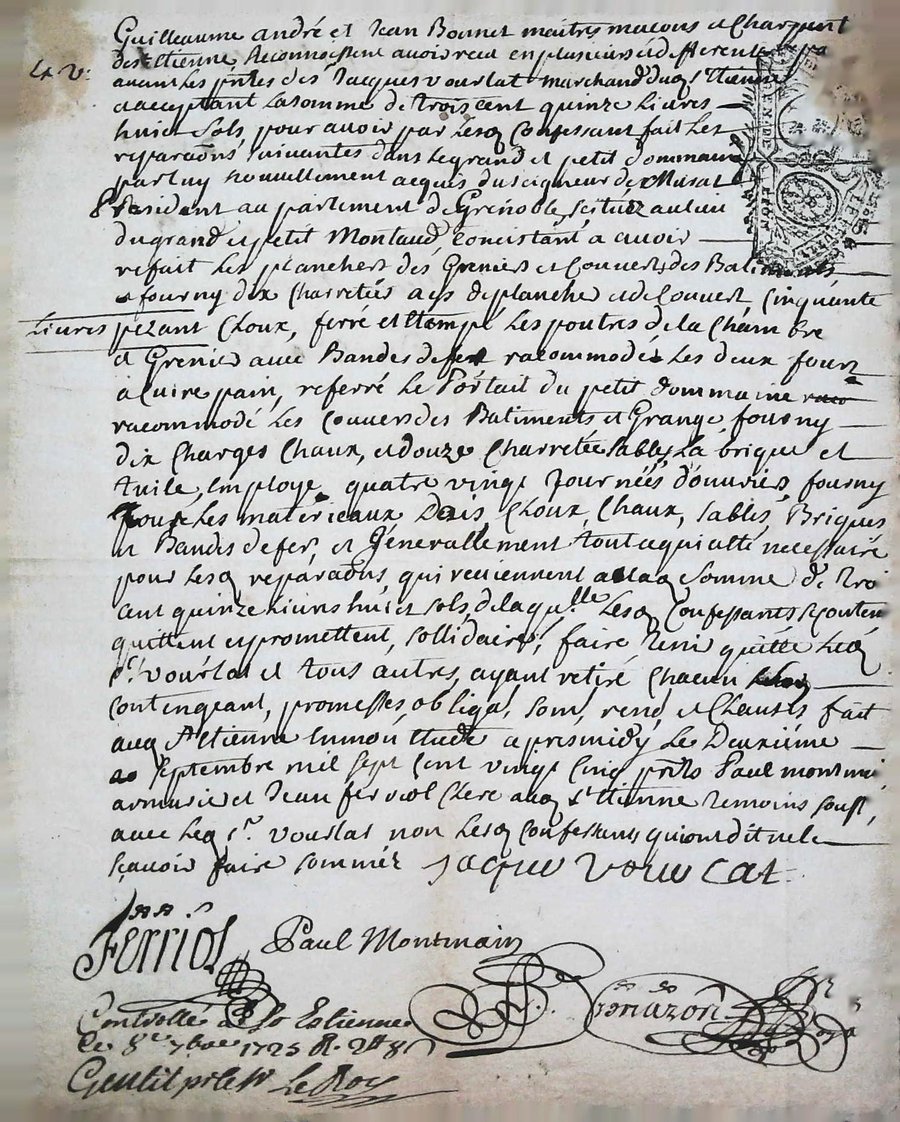 Guilleaume andré et Jean Bonnet maitres macons et Charpent
de St Etienne Reconnoissent avoir receu en plusieurs et differente
4 v:
avant les pntes des Jacques vourlat marchand dud St Etienne
acceptant la somme de trois cent quinze Livres
huict sols pour avoir par lesd Confessant fait les
reparaons suivantes dans le grand et petit dommaine
par luy nouvellement acquis du seigneur de Murat
President au parlement de Grenoble, scituez au lieu
du grand et petit Montaud, concistant a avoir
refait les planchers des Greniers et Couverts des Batiments
fourny dix Charretées ais de planche et de Couvert Cinquante
Livres pezant Cloux, ferré et Etampé les poutres de la Chambre
et Grenier avec Bandes de fer racommodés les deux fours
a Cuire pain, referré le Portait du petit dommaine
racommodé les Couvers des Batiments et Grange, fourny
dix Charges Chaux, et douze Charretée sables, la brique et
tuile, Employé quatre vingt Journées d'ouvriers, fourny
tous les materieaux Dais, Cloux, Chaux, Sables, Briques
et Bandes de fer, et Generallement tout ce qui a été necessaire
pour lesd reparaons, qui reviennent a lad somme de Troi
cent quinze Livres huict sols, de laqulle lesd Confessants se conten
quittent et promettent, sollidairet, faire tenir quitte led
sr. vourlat et tous autres, ayant retiré Chacun
Contengeant, promesses, obliga, Som, renon, et Clauses fait
aud St Etienne en mon Etude apres midy le Deuxiéme
septembre mil sept Cent vingt Cinq pnts Paul montmain
armurier et Jean ferriol Clerc aud St Etienne temoins soussi,
avec led sr. vourlat non lesd Confessants qui ont dit ne le
sçavoir faire sommez Jacque Vourlat
Ferriol Paul Montmain
Controllé a St Estienne
le 8e 7bre 1725 R.
Gentil Le Roy